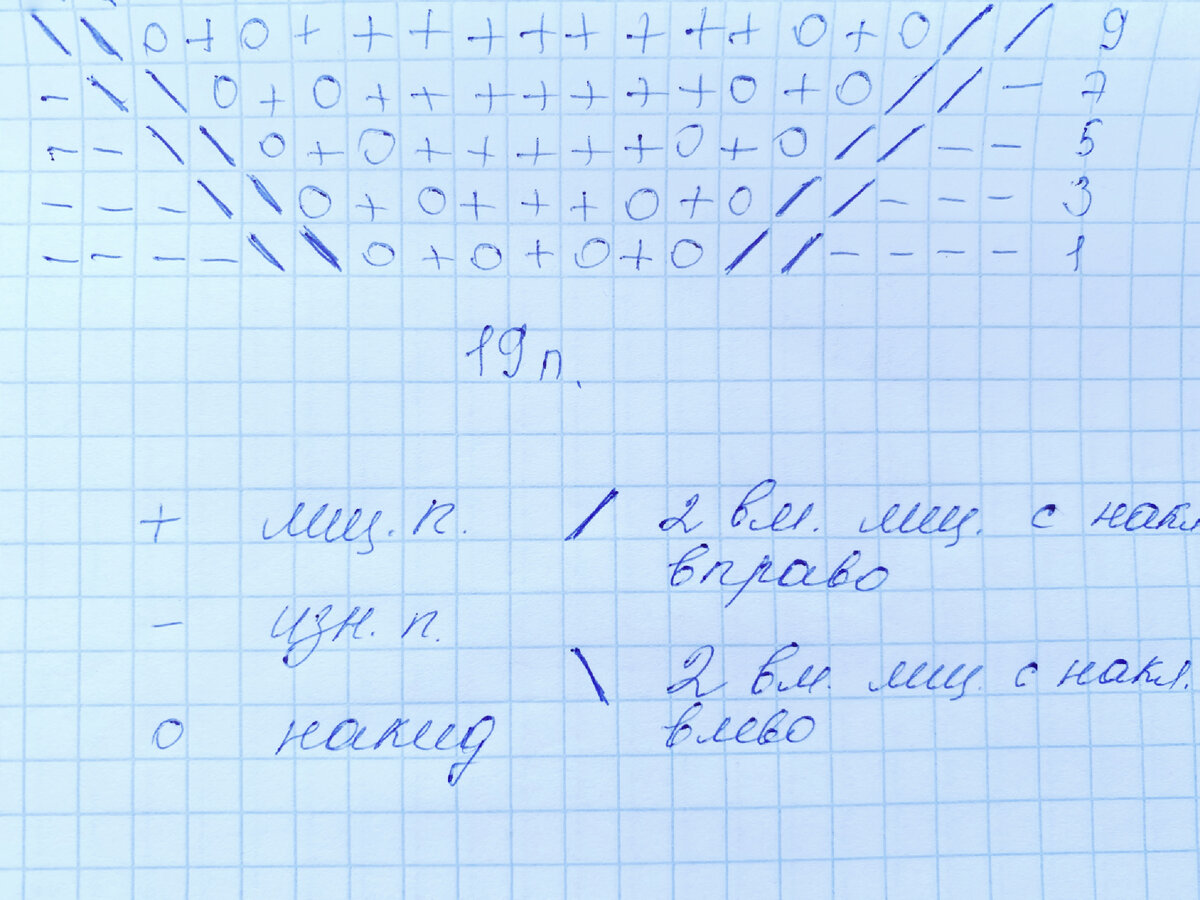 \ \ O + O + + + + + + + + + O + O / / 9
- \ \ O + O + + + + + + + O + O / / - 7
- - \ \ O + O + + + + + O + O / / - - 5
- - - \ \ O + O + + + O + O / / - - - 3
- - - - \ \ O + O + O + O / / - - - - 1
19 п.
+ лиц. п.
- изн. п.
O накид
/ 2 вм. лиц. с накл
вправо
\ 2 вм. лиц. с накл.
влево